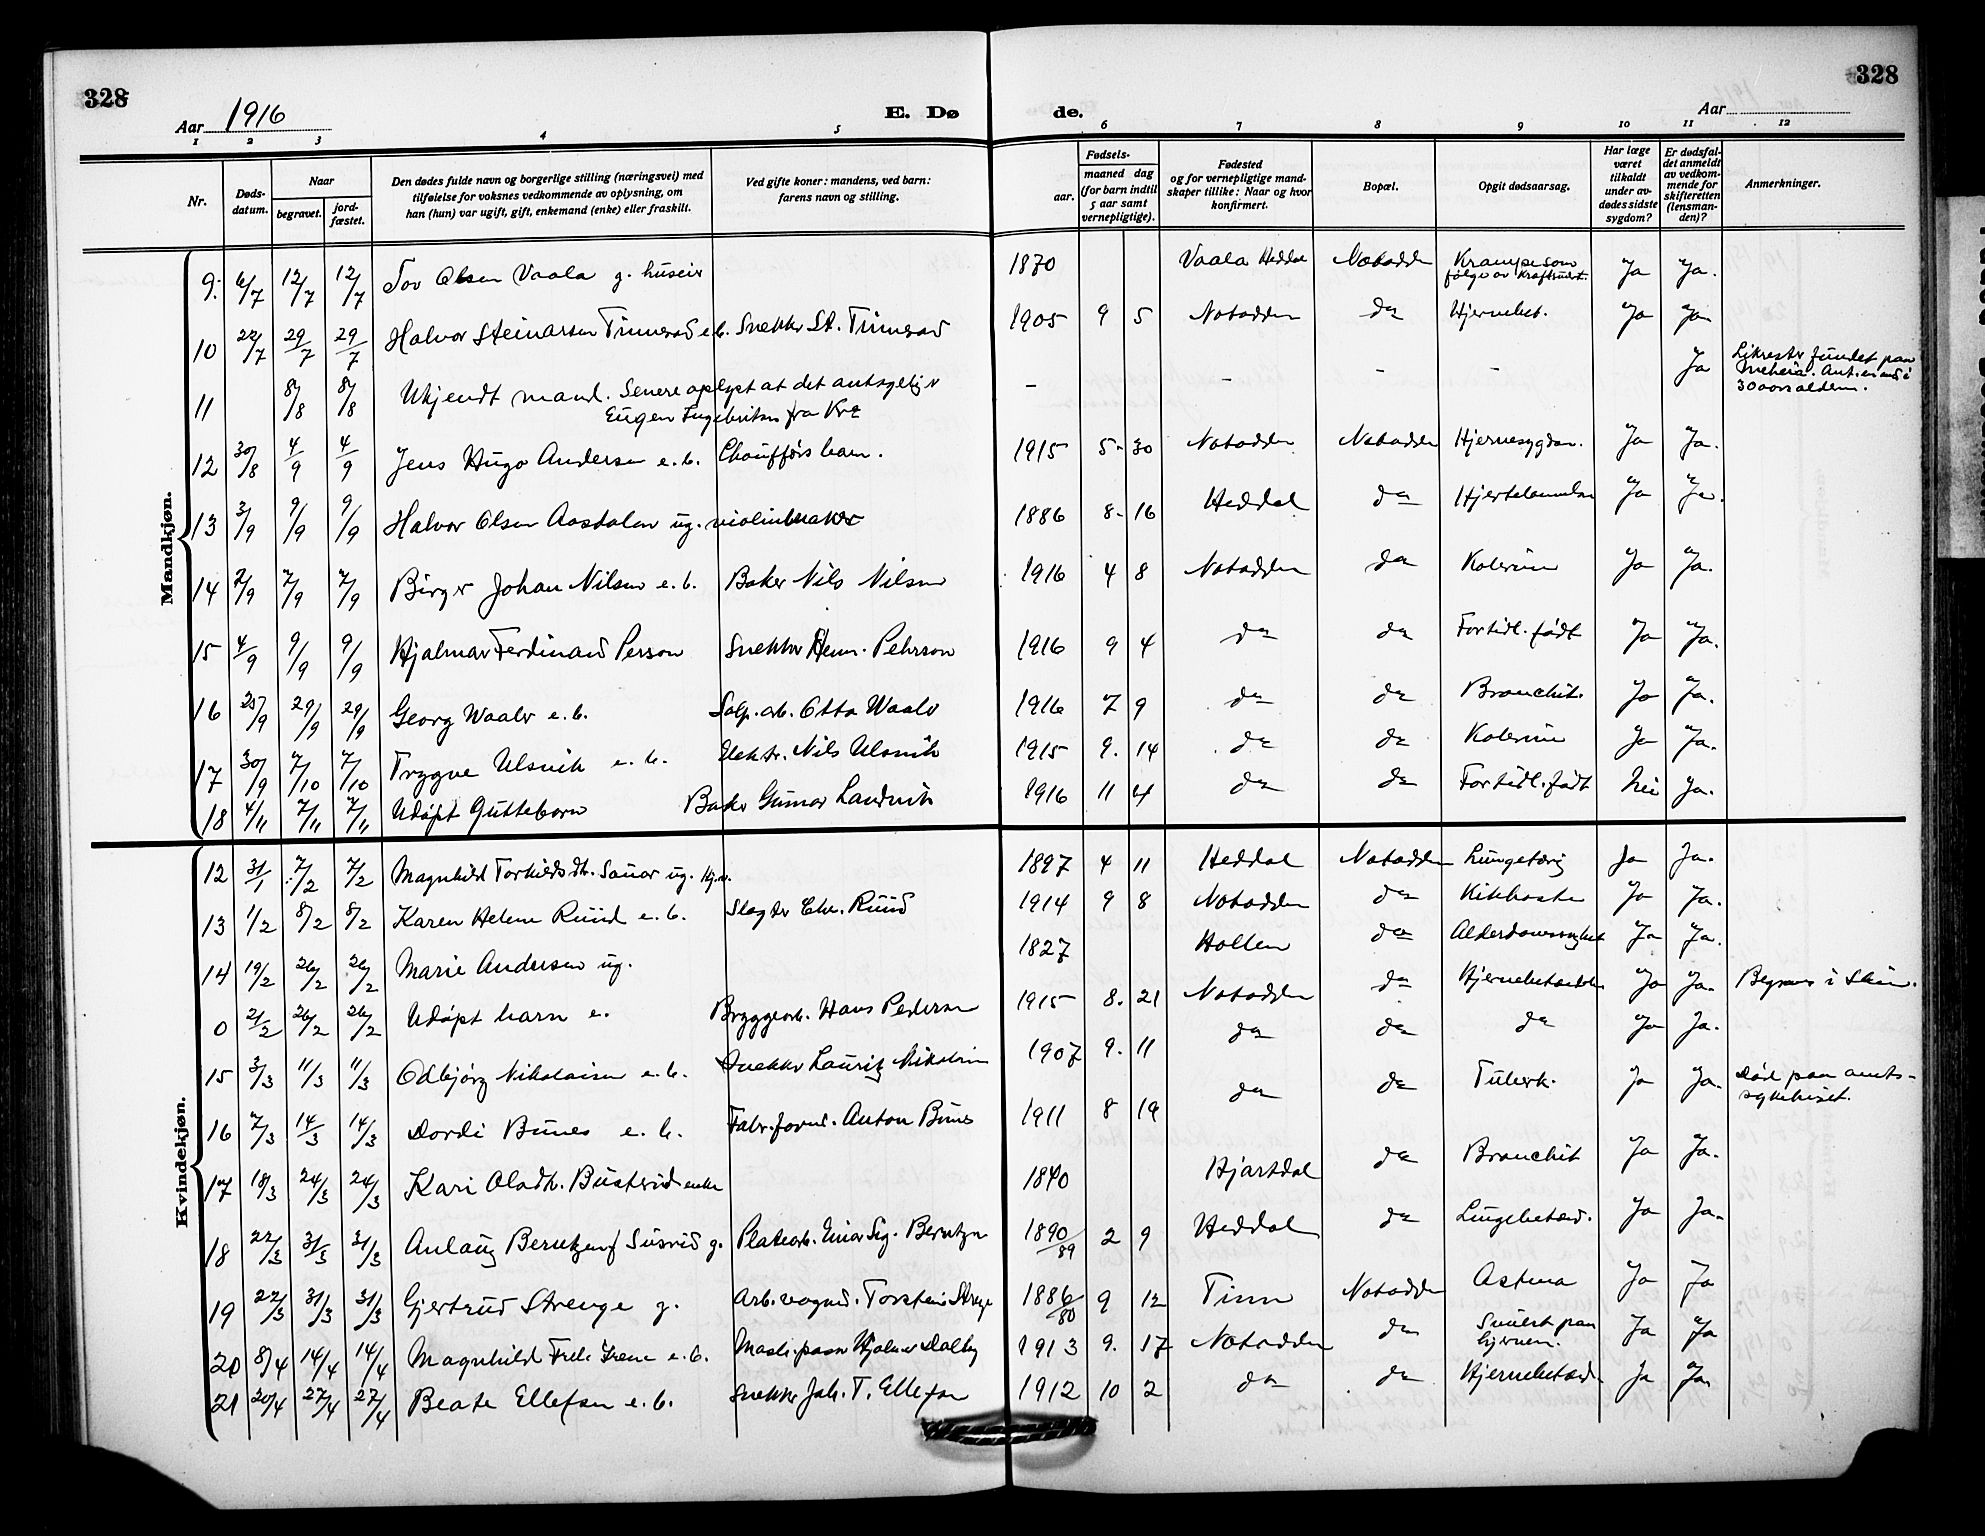 328
328
Aar 1916
E. Dø
de.
Aar
1 2 3 4 5 6 7 8 9 10 11 12
Nr.
Døds-
datum.
Naar
begravet.
jord-
fæstet.
Den dødes fulde navn og borgerlige stilling (næringsvei) med
tilføielse for voksnes vedkommende av oplysning, om
han (hun) var ugift, gift, enkemand (enke) eller fraskilt.
Ved gifte koner: mandens, ved barn:
farens navn og stilling.
Fødsels-
aar.
maaned dag
(for barn indtil
5 aar samt
vernepligtige).
Fødested
og for vernepligtige mand-
skaper tillike: Naar og hvor
konfirmert.
Bopæl.
Opgit dødsaarsag.
Har læge
været
tilkaldt
under av-
dødes sidste
sygdom?
Er dødsfal-
det anmeldt
av vedkom-
mende for
skifteretten
(lensman-
den)?
Anmerkninger.
Mandkjøn.
9. 6/7 12/7 12/7 Tov Olsen Vaala g. huseier 1870 Vaala Heddal Notodden Krampe som følge av Ja Ja.
10 22/7 29/7 29/7 Halvor Steinarsen Tinnesand e.b. Snekker St. Tinnesand 1905 9 5 Notodden do Hjernebet. Ja Ja
11 8/8 8/8 Ukjendt mand. Senere oplyst at det antagelig - - - - Ja Likrester fundet paa
Eugen Engebritsen fra Kra Meheia. Ant. en mand i
30 aars alderen.
12 30/8 4/9 4/9 Jens Hugo Andersen e.b. Chaufførs barn. 1915 5 30 Notodden Notodden Hjernesygdom. Ja Ja.
13 3/9 9/9 9/9 Halvor Olsen Aasdalen ug. violinmaker 1886 8 16 Heddal do Ja Ja.
14 2/9 7/9 7/9 Birger Johan Nilsen e.b. Baker Nils Nilsen 1916 4 8 Notodden do Kolerine Ja Ja.
15 4/9 9/9 9/9 Hjalmar Ferdinand Person Snekker Herm. Pehrson 1916 9 4 do do Fortidl. født Ja Ja.
16 25/9 29/9 29/9 Georg Waaler e.b. Salp. arb. Otto Waaler 1916 7 9 do do Bronchit. Ja Ja.
17 30/9 7/10 7/10 Trygve Ulsvik e.b. Elektr. Nils Ulsvik 1915 9. 14 do do Kolerine Ja Ja.
18 4/11 7/11 7/11 Udøpt Guttebarn Baker Gunnar Landvik 1916 11 4 do do Fortidl. født Nei Ja.
Kvindekjøn.
12 31/1 7/2 7/2 Magnhild Torkildsdtr. Sauar ug. 1897 4 11 Heddal Notodden Lungetæring Ja Ja.
13 1/2 8/2 8/2 Karen Helene Ruud e.b. Slagter Chr. Ruud 1914 9 8 Notodden do Kikhoste Ja Ja.
14 19/2 26/2 26/2 Marie Andersen ug. 1827 Holten do Alderdomssvaghet Ja Ja.
0 21/2 26/2 26/2 Udøpt barn e. Bryggearb. Hans Pedersen 1915 8. 21 Notodden do Hjernebetændelse Ja Ja. Begraves i Skien.
15 3/3 11/3 11/3 Odbjørg Nikolaisen e.b. Snekker Lauritz Nikolaisen 1907 9. 11 do do do Ja Ja.
16 7/3 14/3 14/3 Dordi Bunes e.b. Fabr. formd. Anton Bunes 1911 8 19 do do Tuberk. Ja Ja. Død paa amts-
sykehuset.
17 18/3 24/3 24/3 Kari Olsdtr. Busterud enke 1840 Hjartdal do Bronchit Ja Ja.
18 22/3 31/3 31/3 Anlaug Berntzen f. Susrud g. Platearb. Einar Sig. Berntzen 1890/89 2 9 Heddal do Lungebetænd. Ja Ja.
19 22/3 31/3 31/3 Gjertrud Strenge g. Arb. vognd. Torstein Strenge 1886/80 9 12 Tinn Notodden Astma Ja Ja
20 8/4 14/4 14/4 Magnhild Irene e.b. Mask. passer Hjalmar Dalby 1913 9. 17 Notodden do Svulst paa hjernen. Ja Ja
21 20/4 27/4 27/4 Beate Ellefsen e.b. Snekker Joh. T. Ellefsen 1912 10 2 do do Hjernebetænd. Ja Ja